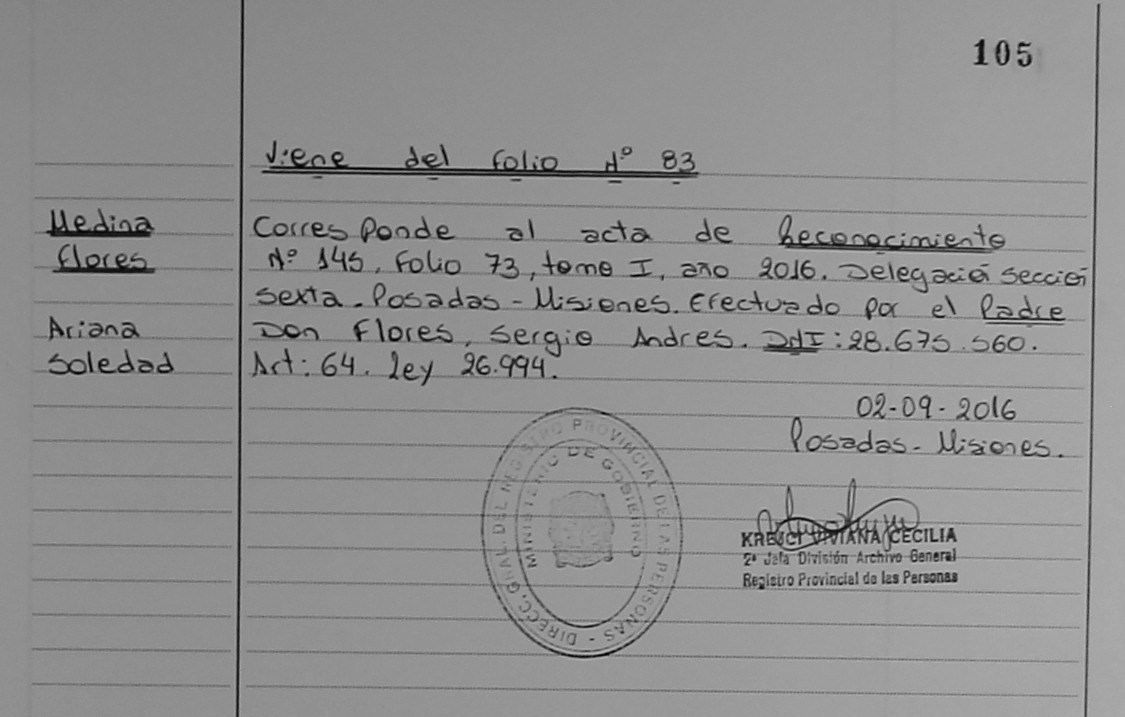 105
Viene del Folio Nº 83
Medina
Flores
Ariana
Soledad
Corresponde al acta de Reconocimiento
Nº 145, Folio 73, tomo I, año 2016. Delegación sección
sexta. Posadas - Misiones. Efectuado por el Padre
Don Flores, Sergio Andres. DNI: 28.675.560.
Art: 64. Ley 26.994.
02-09-2016
Posadas - Misiones.
DIRECC. GRAL. DEL REGISTRO PROVINCIAL DE LAS PERSONAS -
MINISTERIO DE GOBIERNO
KREJCI VIVIANA CECILIA
2ª Jefa División Archivo General
Registro Provincial de las Personas